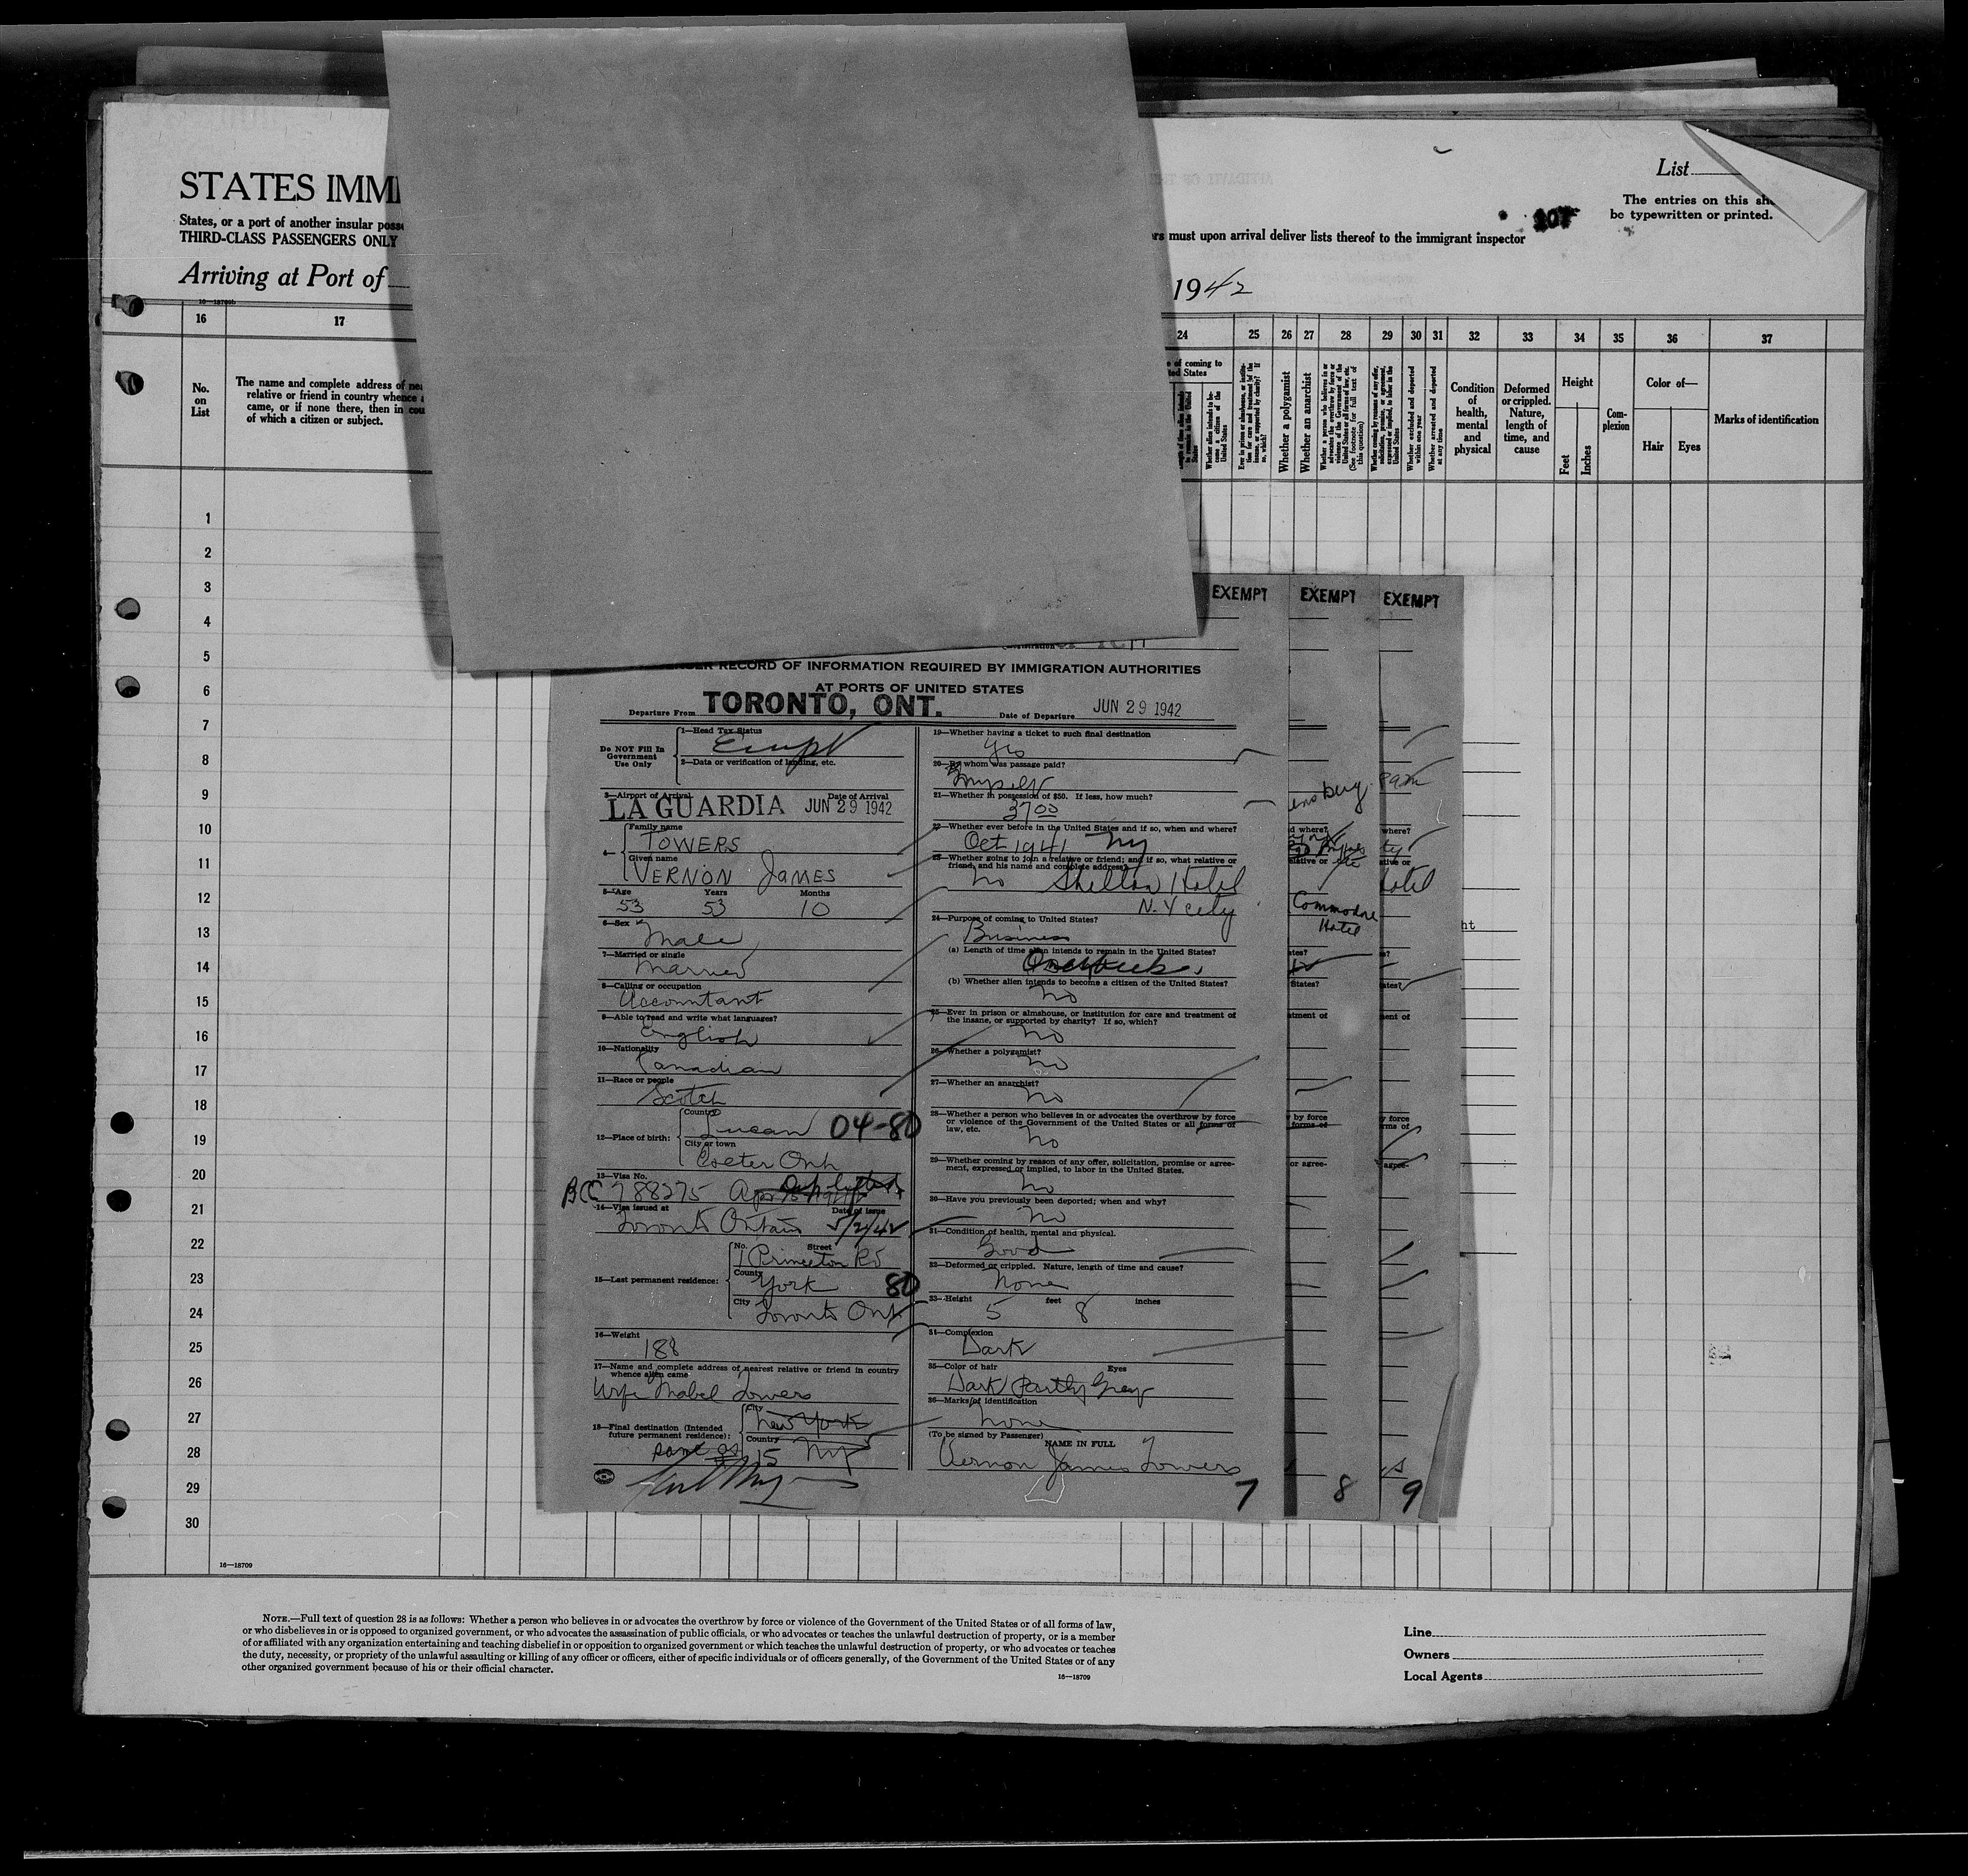 STATES IMMI
States, or a port of another insular posse
THIRD-CLASS PASSENGERS ONLY
Arriving at Port of
List
The entries on this sh
be typewritten or printed.
107
rs must upon arrival deliver lists thereof to the immigrant inspector
1942
16 17 24 25 26 27 28 29 30 31 32 33 34 35 36 37
No. on List
The name and complete address of nea
relative or friend in country whence a
came, or if none there, then in cou
of which a citizen or subject.
e of coming to
ted States
Whether alien intends to become a citizen of the United States
Ever in prison or almshouse, or institution for care and treatment of the insane, or supported by charity? If so, which?
Whether a polygamist
Whether an anarchist
Whether a person who believes in or advocates the overthrow by force or violence of the Government of the United States or all forms of law, etc. (See footnote for full text of this question)
Whether coming by reason of any offer, solicitation, promise, or agreement, expressed or implied, to labor in the United States
Whether excluded and deported within one year
Whether arrested and deported at any time
Condition of health, mental and physical
Deformed or crippled. Nature, length of time, and cause
Height
Feet
Inches
Complexion
Color of—
Hair
Eyes
Marks of identification
1
2
3
4
5
6
7
8
9
10
11
12
13
14
15
16
17
18
19
20
21
22
23
24
25
26
27
28
29
30
16—18709
EXEMPT
EXEMPT
EXEMPT
RECORD OF INFORMATION REQUIRED BY IMMIGRATION AUTHORITIES
AT PORTS OF UNITED STATES
Departure From TORONTO, ONT. Date of Departure JUN 29 1942
Do NOT Fill In
Government
Use Only
1—Head Tax Status
2—Data or verification of landing, etc.
3—Airport of Arrival Date of Arrival
LA GUARDIA JUN 29 1942
4—
Family name
TOWERS
Given name
VERNON JAMES
5—Age Years Months
53 53 10
6—Sex
Male
7—Married or single
Married
8—Calling or occupation
Accountant
9—Able to read and write what languages?
English
10—Nationality
Canadian
11—Race or people
Scotch
12—Place of birth:
Country
Lucan 04-80
City or town
Exeter Ont
13—Visa No.
BCC 788275
14—Visa issued at Date of issue
Toronto Ontario 5/2/42
15—Last permanent residence:
No. Street
1 Princeton Rd
County
York 80
City
Toronto Ont
16—Weight
188
17—Name and complete address of nearest relative or friend in country
whence alien came
Wife Mabel Towers
18—Final destination (Intended
future permanent residence):
City
New York
Country
same as 15 NY
19—Whether having a ticket to such final destination
Yes
20—By whom was passage paid?
Myself
21—Whether in possession of $50. If less, how much?
37 00
22—Whether ever before in the United States and if so, when and where?
Oct 1941 NY
23—Whether going to join a relative or friend; and if so, what relative or
friend, and his name and complete address?
No Shelton Hotel
N.Y city
24—Purpose of coming to United States?
Business
(a) Length of time alien intends to remain in the United States?
One week
(b) Whether alien intends to become a citizen of the United States?
No
25—Ever in prison or almshouse, or institution for care and treatment of
the insane, or supported by charity? If so, which?
No
26—Whether a polygamist?
No
27—Whether an anarchist?
No
28—Whether a person who believes in or advocates the overthrow by force
or violence of the Government of the United States or all forms of
law, etc.
No
29—Whether coming by reason of any offer, solicitation, promise or agree-
ment, expressed or implied, to labor in the United States.
No
30—Have you previously been deported; when and why?
No
31—Condition of health, mental and physical.
Good
32—Deformed or crippled. Nature, length of time and cause?
None
33—Height feet inches
5 8
34—Complexion
Dark
35—Color of hair Eyes
Dark Partly Grey
36—Marks of identification
None
(To be signed by Passenger)
NAME IN FULL
Vernon James Towers
7
Commodore
Hotel
8
9
NOTE.—Full text of question 28 is as follows: Whether a person who believes in or advocates the overthrow by force or violence of the Government of the United States or of all forms of law,
or who disbelieves in or is opposed to organized government, or who advocates the assassination of public officials, or who advocates or teaches the unlawful destruction of property, or is a member
of or affiliated with any organization entertaining and teaching disbelief in or opposition to organized government or which teaches the unlawful destruction of property, or who advocates or teaches
the duty, necessity, or propriety of the unlawful assaulting or killing of any officer or officers, either of specific individuals or of officers generally, of the Government of the United States or of any
other organized government because of his or their official character.
16—18709
Line
Owners
Local Agents